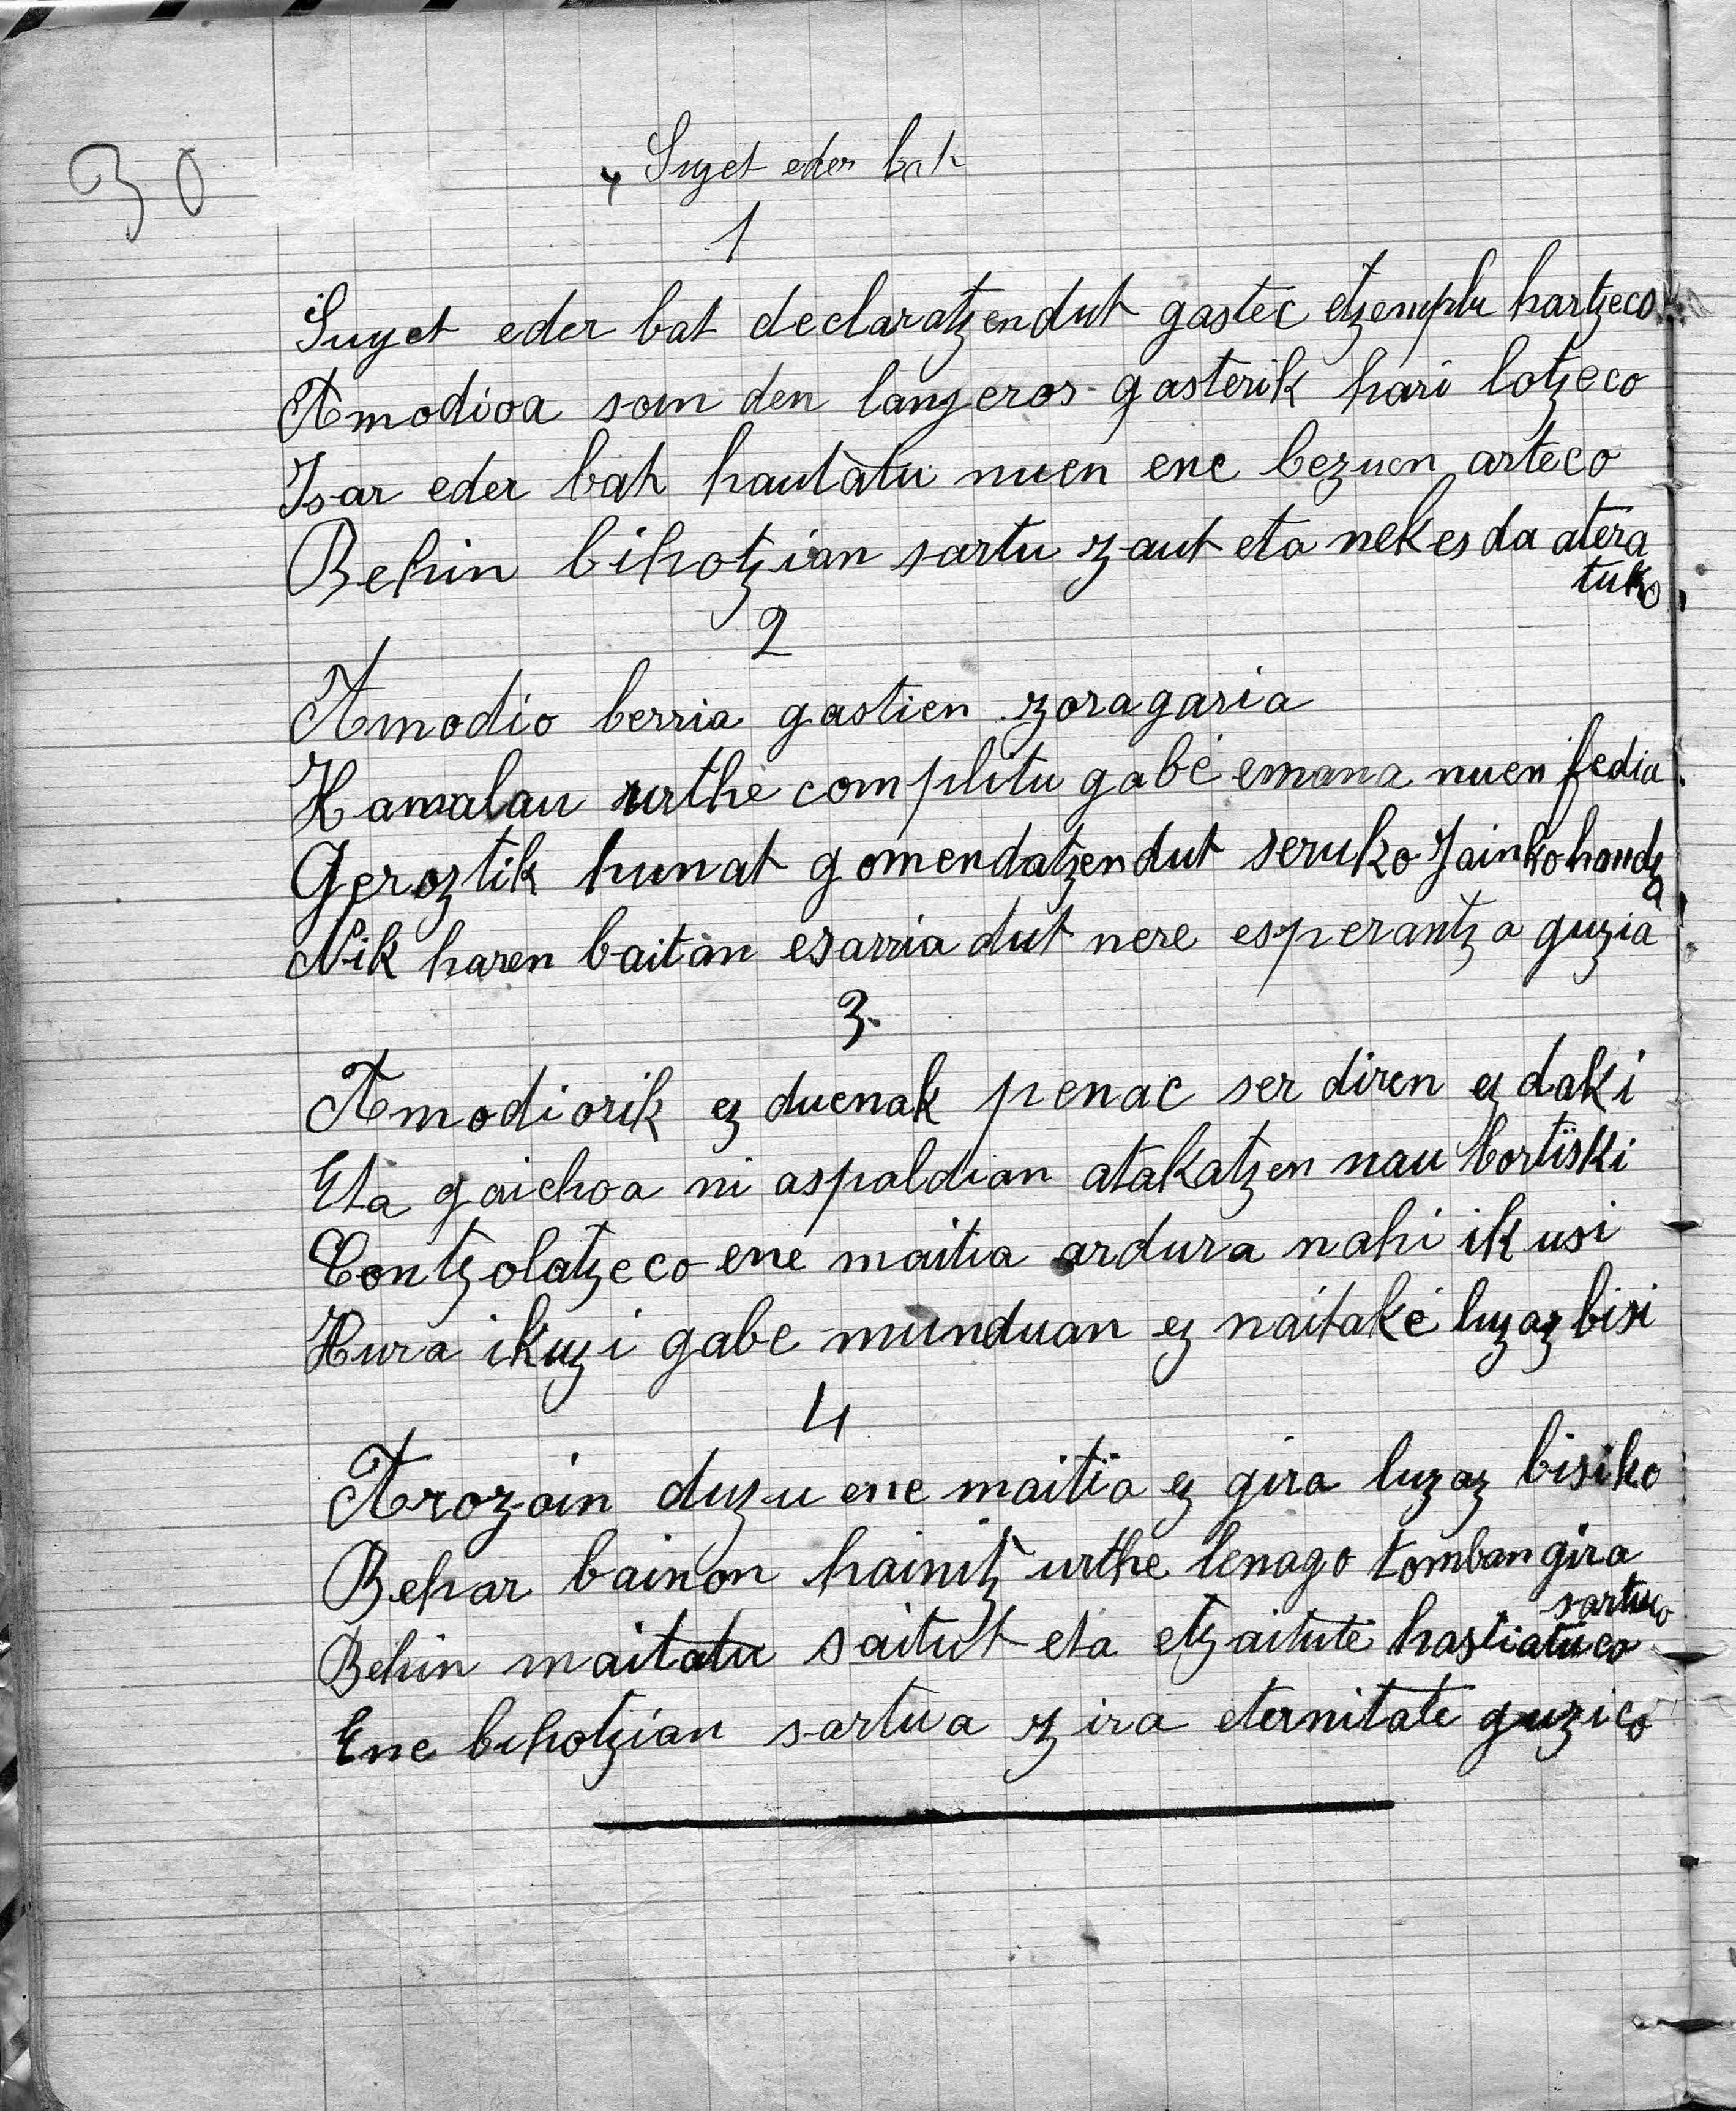 30
Suyet eder bat
1
Suyet eder bat declaratzendut gastec etzemplu hartzeco
Amodioa soin den lanjeros gasterik hari lotzeco
Isar eder bat hautatu nuen ene bezuen arteco
Behin bihotzian sartu zaut eta nekes da atera
tuko
2
Amodio berria gastien zoragaria
Hamalau urthe complitu gabe emana nuen fedia
Geroztik hunat gomendatzendut seruko Jainko handia
Nik haren baitan esarria dut nere esperantza guzia
3
Amodiorik ez duenak penac ser diren ez daki
Eta gaichoa ni aspaldian atakatzen nau bortiski
Contzolatzeco ene maitia ardura nahi ikusi
Hura ikuzi gabe munduan ez naitake luzaz bisi
4
Arozoin duzu ene maitia ez gira luzaz bisiko
Behar bainon hainitz urthe lenago tomban gira
sartuco
Behin maitatu saitut eta etzaitute hastiatuco
Ene bihotzian sartua zira eternitate guzico